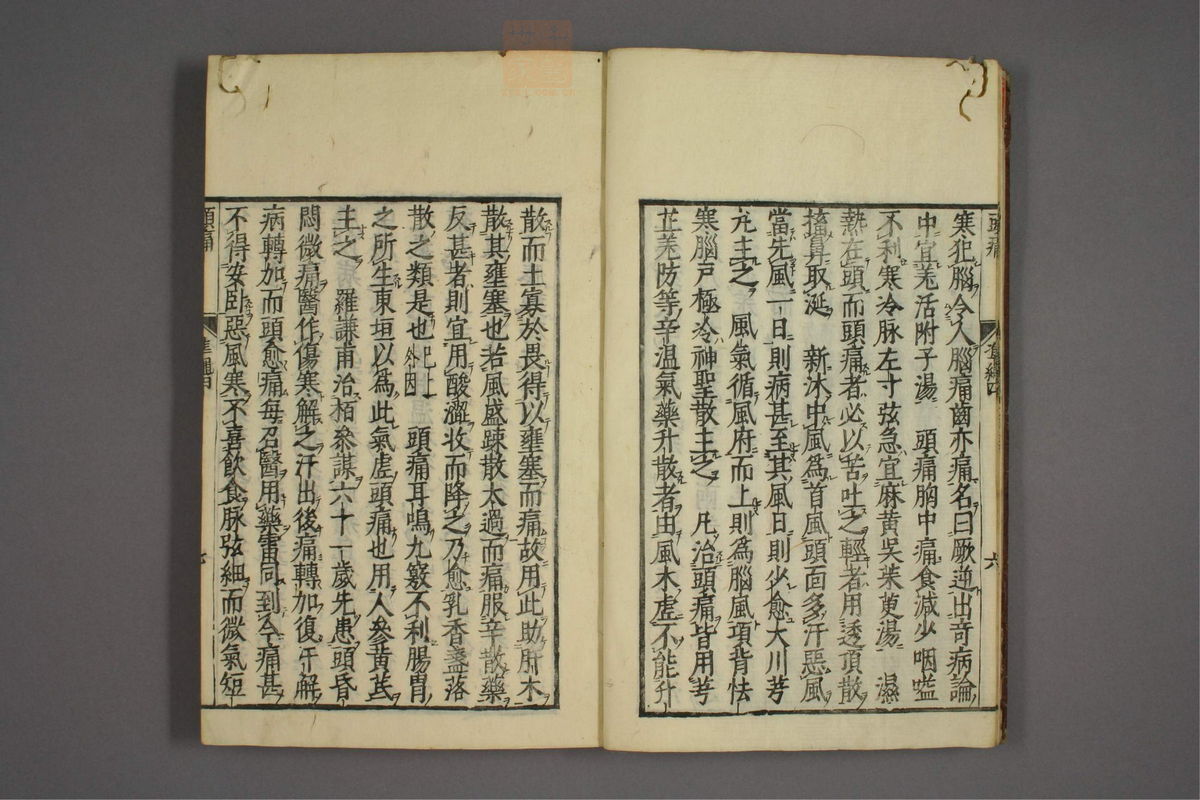 頭痛
六
寒犯腦冷入腦痛齒亦痛名曰厥逆出奇病論
中宜羌活附子湯　頭痛胸中痛食減少咽嗌
不利寒冷脉左寸弦急宜麻黄吳茱萸湯　濕
熱在頭而頭痛者必以苦吐之輕者用透頂散
搐鼻取涎　新沐中風爲首風頭面多汗惡風
當先風一日則病甚至其風日則少愈大川芎
丸主之　風氣循風府而上則爲腦風項背怯
寒腦戶極冷神聖散主之　凡治頭痛皆用芎
芷羌防等辛温氣藥升散者由風木虛不能升
散而土寡於畏得以壅塞而痛故用此助肝木
散其壅塞也若風盛疎散太過而痛服辛散藥
反甚者則宜用酸澀收而降之乃愈乳香盞落
散之類是也已上外因　頭痛耳鳴九竅不利腸胃
之所生東垣以爲此氣虛頭痛也用人參黄芪
主之　羅謙甫治栢參謀六十一歲先患頭昏
悶微痛醫作傷寒解之汗出後痛轉加復汗解
病轉加而頭愈痛每召醫用藥雷同到今痛甚
不得安卧惡風寒不喜飲食脉弦細而微氣短
頭痛